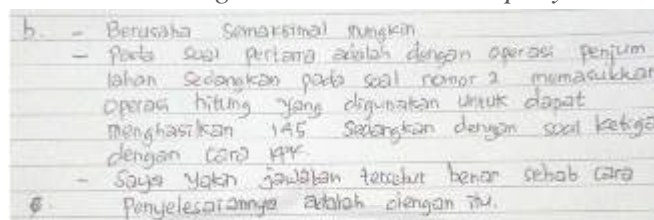 b. - Berusaha semaksimal mungkin
- Pada soal pertama adalah dengan operasi penjum
lahan sedangkan pada soal nomor 2 memasukkan
operasi hitung yang digunakan untuk dapat
menghasilkan 145 sedangkan dengan soal ketiga
dengan cara
- Saya yakin jawaban tersebut benar sebab cara
Penyelesaiannya adalah dengan itu.